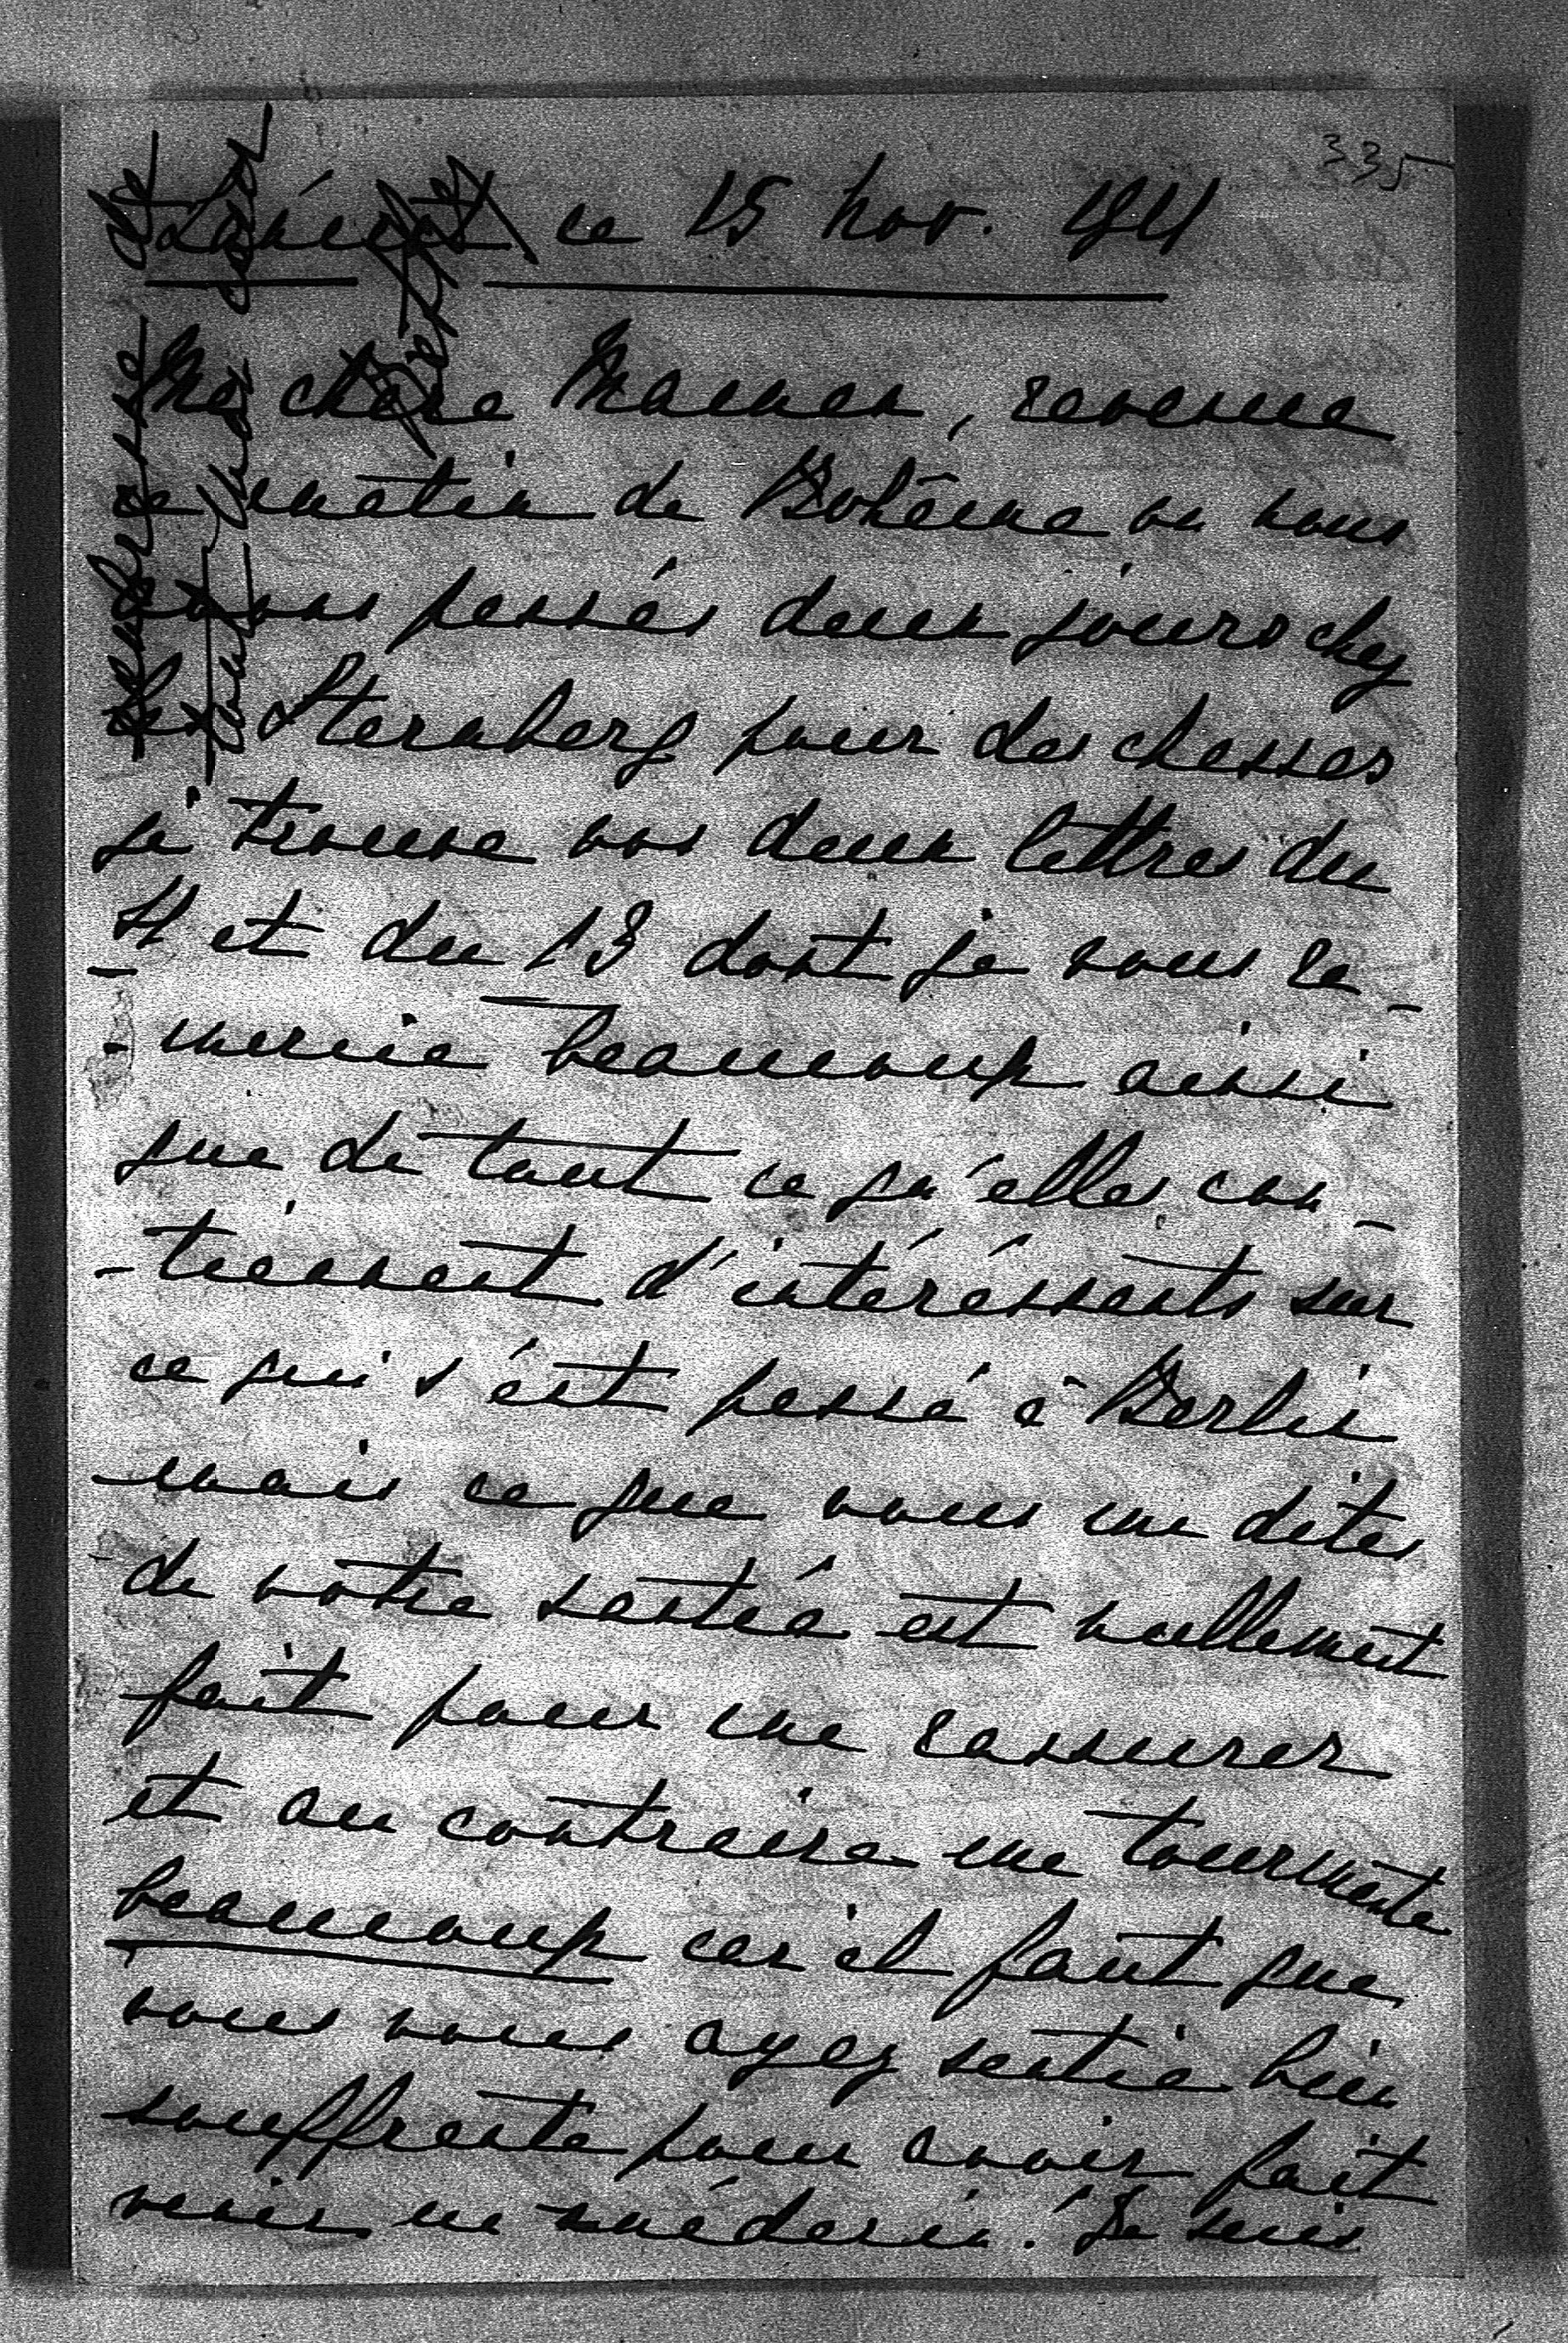 335
Láncut ce 15 nov. 1911
Ma chère Maman, revenue
ce matin de Bohême ou nous
avons passés deux jours chez
les Sternberg pour des chasses
je trouve vos deux lettres du
11 et du 13 dont je vous re-
-mercie beaucoup ainsi
que de tout ce qu'elles con-
-tiennent d'intéréssants sur
ce qui s'est passé à Berlin
mais ce que vous me dites
de votre santé est nullement
fait pour me rassurer
et au contraire me tourmente
beaucoup car il faut que
vous vous ayez sentie bien
souffrante pour avoir fait
venir un médecin. Je suis